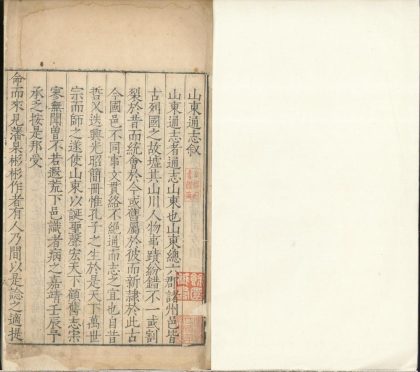 山東通志叙
山東通志者通志山東也山東總六郡諸州邑皆
古列國之故墟其山川人物事蹟紛錯不一或割
裂於昔而統會於今或舊屬於彼而新隸於此古
今國邑不同事文貫絡不絕通而志之宜也自昔
哲乂迭興光昭簡冊惟孔子之生於是天下萬世
宗而師之遂使山東以誕聖聲宏天下顧舊志宗
寥無聞曾不若遐荒下邑識者病之嘉靖壬辰予
承乏按是邦受
命而來見藩臬彬彬作者有人乃間以是諗之適提